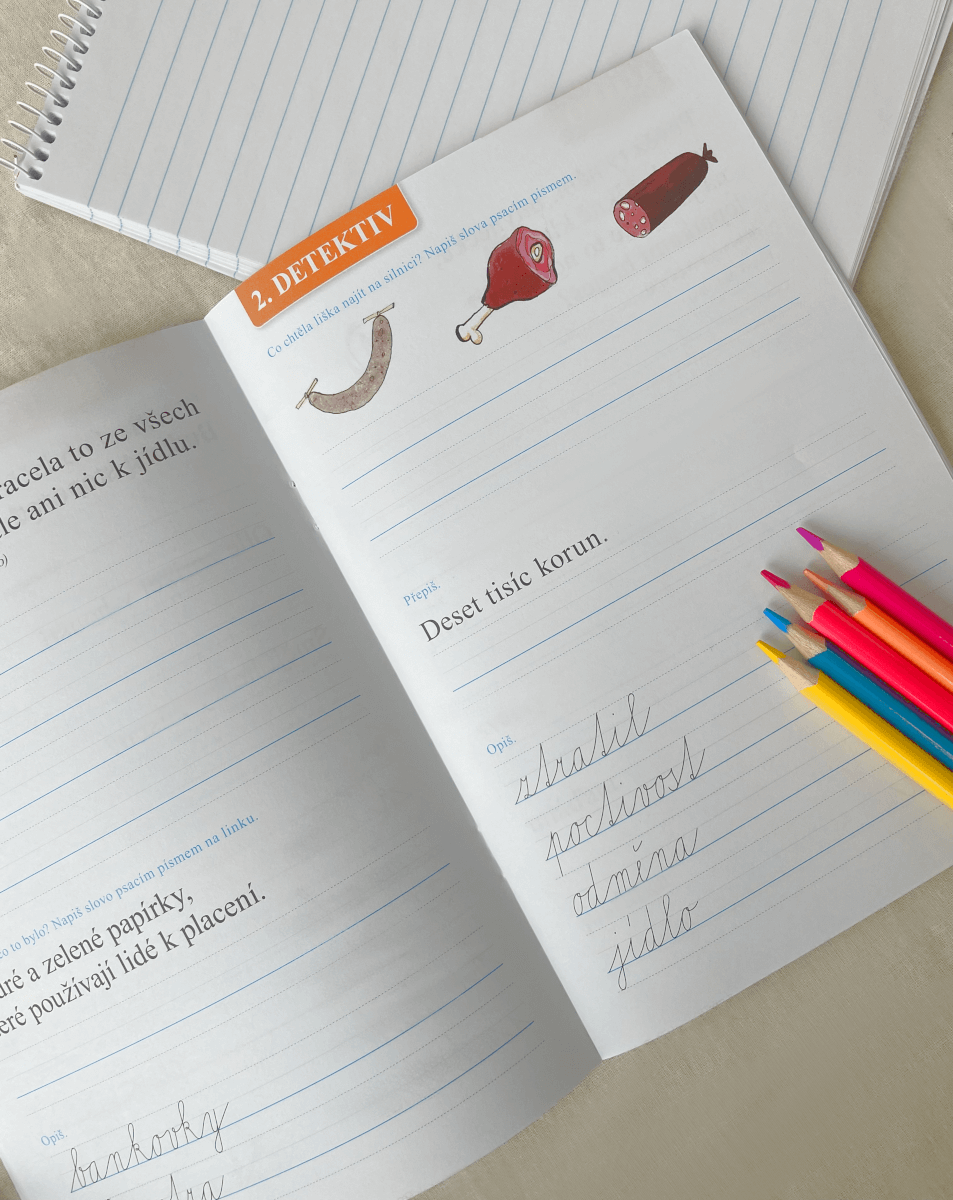 to ze všech
ani nic k jídlu.
co to bylo? Napiš slovo psacím písmem na linku.
a zelené papírky,
používají lidé k placení.
Opiš.
bankovky
2. DETEKTIV
Co chtěla liška najít na silnici? Napiš slova psacím písmem.
Přepiš.
Deset tisíc korun.
Opiš.
ztratil
poctivost
odměna
jídlo